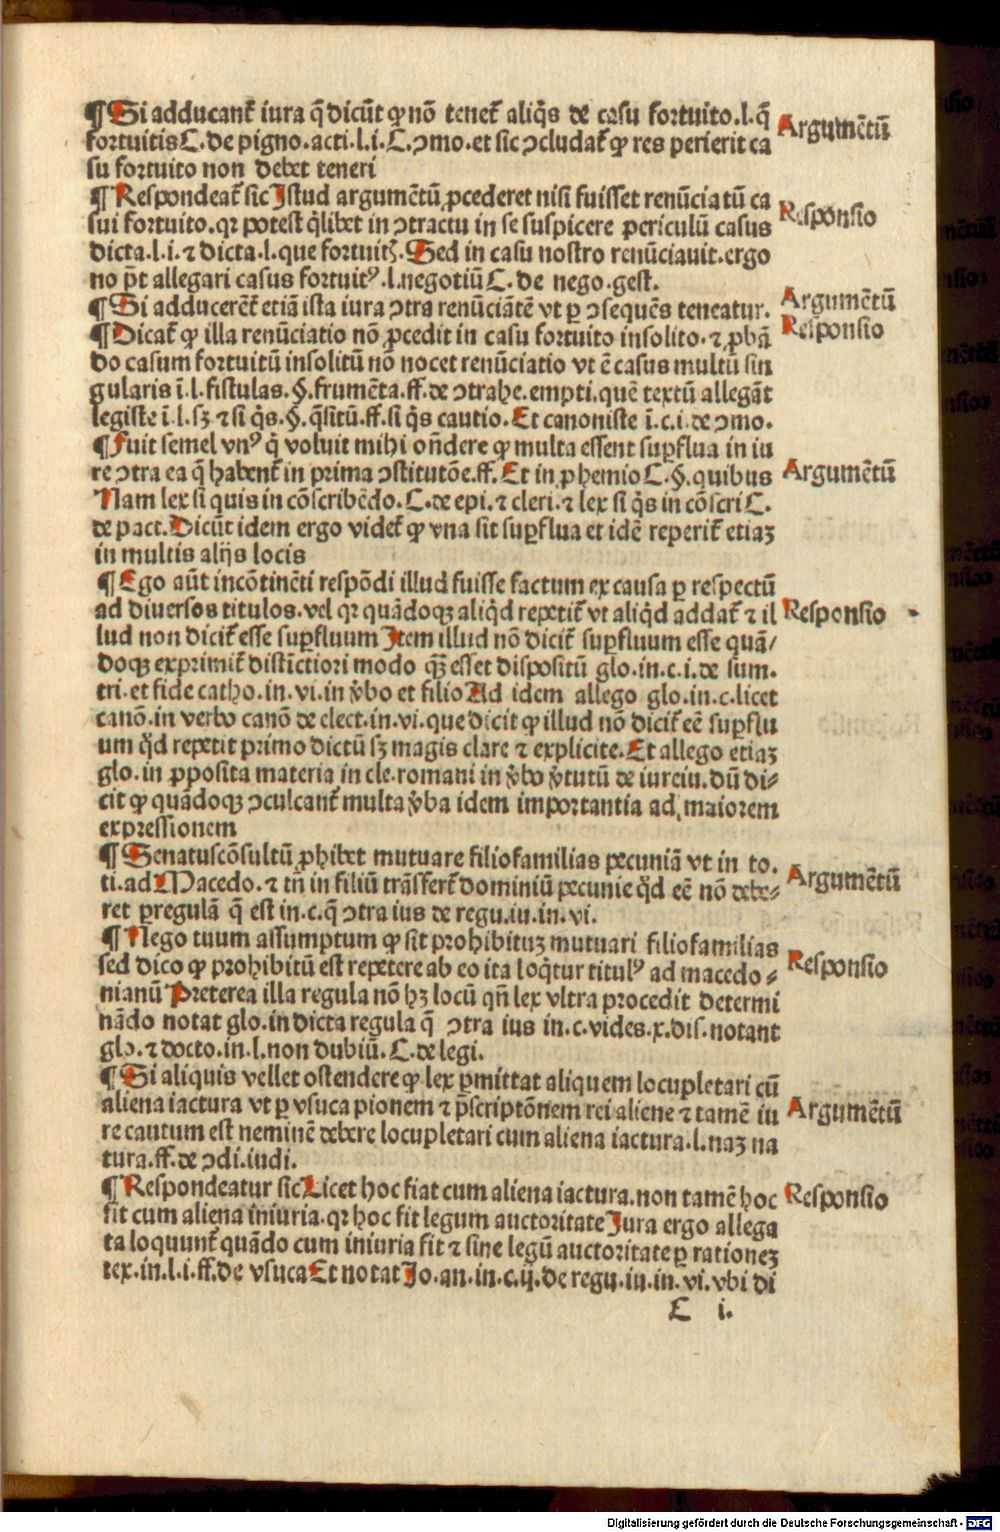 ¶Si adducant̃ iura q̄ dicūt ꝙ nō tenet̃ aliq̄s de casu fortuito.l.q̄ Argumētū
fortuitis C.de pigno.acti.l.i.C.ↄmo.et sic ↄcludat̃ ꝙ res perierit ca
su fortuito non debet teneri
¶Respondeat̃ sic Istud argumētū ꝓcederet nisi fuisset renūciatū ca
sui fortuito.qr potest q̄libet in ↄtractu in se suspicere periculū casus Responsio
dicta.l.i.⁊ dicta.l.que fortuitꝭ.Sed in casu nostro renūciauit.ergo
no p̄t allegari casus fortuitꝰ.l.negotiū C.de nego.gest.
¶Si adducerēt̃ etiā ista iura ↄtra renūciātē vt ꝑ ↄsequēs teneatur. Argumētū
¶Dicat̃ ꝙ illa renūciatio nō ꝓcedit in casu fortuito insolito.⁊ ꝓbā Responsio
do casum fortuitū insolitū nō nocet renūciatio vt ē casus multū sin
gularis ī.l.fistulas.§.frumēta.ff.de ↄtrahe.empti.quē textū allegāt
legiste ī.l.sꝫ ⁊ si q̄s.§.q̄sitū.ff.si q̄s cautio.Et canoniste ī.c.i.de ↄmo.
¶Fuit semel vnꝰ q̄ voluit mihi on̄dere ꝙ multa essent suꝑflua in iu
re ↄtra ea q̄ habent̃ in prima ↄstitutōe.ff.Et in ꝓhemio C.§.quibus Argumētū
Nam lex si quis in cōscribēdo.C.de epi.⁊ cleri.⁊ lex si q̄s in cōscri C.
de pact.Dicūt idem ergo videt̃ ꝙ vna sit suꝑflua et idē reperit̃ etiaꝫ
in multis alijs locis
¶Ego aūt incōtinēti respōdi illud fuisse factum ex causa ꝑ respectū
ad diuersos titulos.vel qr quādoqꝫ aliq̄d repetit̃ vt aliq̄d addat̃ ⁊ il Responsio
lud non dicit̃ esse suꝑfluum Item illud nō dicit̃ suꝑfluum esse quā/
doqꝫ exprimit̃ distīctiori modo qꝫ̄ esset dispositū glo.in.c.i.de sum.
tri.et fide catho.in.vi.in v̄bo et filio Ad idem allego glo.in.c.licet
canō.in verbo canō de elect.in.vi.que dicit ꝙ illud nō dicit̃ eē suꝑflu
um q̄d repetit primo dictū sꝫ magis clare ⁊ explicite.Et allego etiaꝫ
glo.in ꝓposita materia in cle.romani in v̄bo v̄tutū de iureiu.dū di⸗
cit ꝙ quādoqꝫ ↄculcant̃ multa v̄ba idem importantia ad maiorem
expressionem
¶Senatuscōsultū ꝓhibet mutuare filiofamilias pecuniā vt in to.
ti.ad Macedo.⁊ tn̄ in filiū trāsfert̃ dominiū pecunie q̄d eē nō debe⸗ Argumētū
ret ꝑ regulā q̄ est in.c.q̄ ↄtra ius de regu.iu.in.vi.
¶Nego tuum assumptum ꝙ sit prohibituꝫ mutuari filiofamilias
sed dico ꝙ prohibitū est repetere ab eo ita loq̄tur titulꝰ ad macedo⸗ Responsio
nianū Preterea illa regula nō hꝫ locū qn̄ lex vltra procedit determi
nādo notat glo.in dicta regula q̄ ↄtra ius in.c.vides.x.dis.notant
glo.⁊ docto.in.l.non dubiū.C.de legi.
¶Si aliquis vellet ostendere ꝙ lex ꝑmittat aliquem locupletari cū
aliena iactura vt ꝑ vsucapionem ⁊ p̄scriptōnem rei aliene ⁊ tamē iu Argumētū
re cautum est neminē debere locupletari cum aliena iactura.l.naꝫ na
tura.ff.de ↄdi.iudi.
¶Respondeatur sic Licet hoc fiat cum aliena iactura.non tamē hoc Responsio
fit cum aliena iniuria.qr hoc fit legum auctoritate Iura ergo allega
ta loquunt̃ quādo cum iniuria fit ⁊ sine legū auctoritate ꝑ rationeꝫ
tex.in.l.i.ff.de vsuca Et notat Io.an.in.c.ij.de regu.iu.in.vi.vbi di
C i.
Digitalisierung gefördert durch die Deutsche Forschungsgemeinschaft - DFG